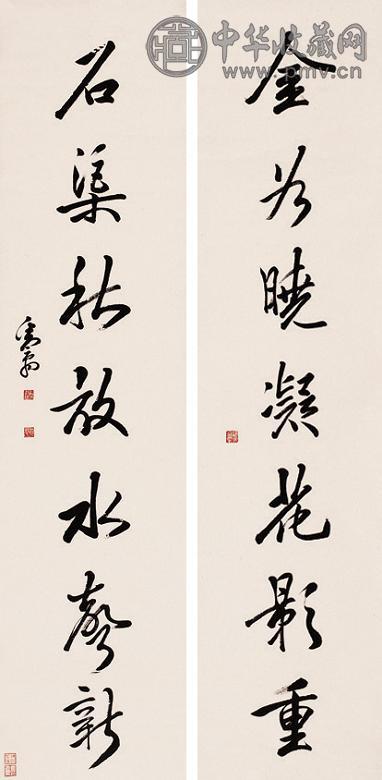 中华收藏网
www.pmv.cn
金谷曉凝花影重
石渠秋放水聲新